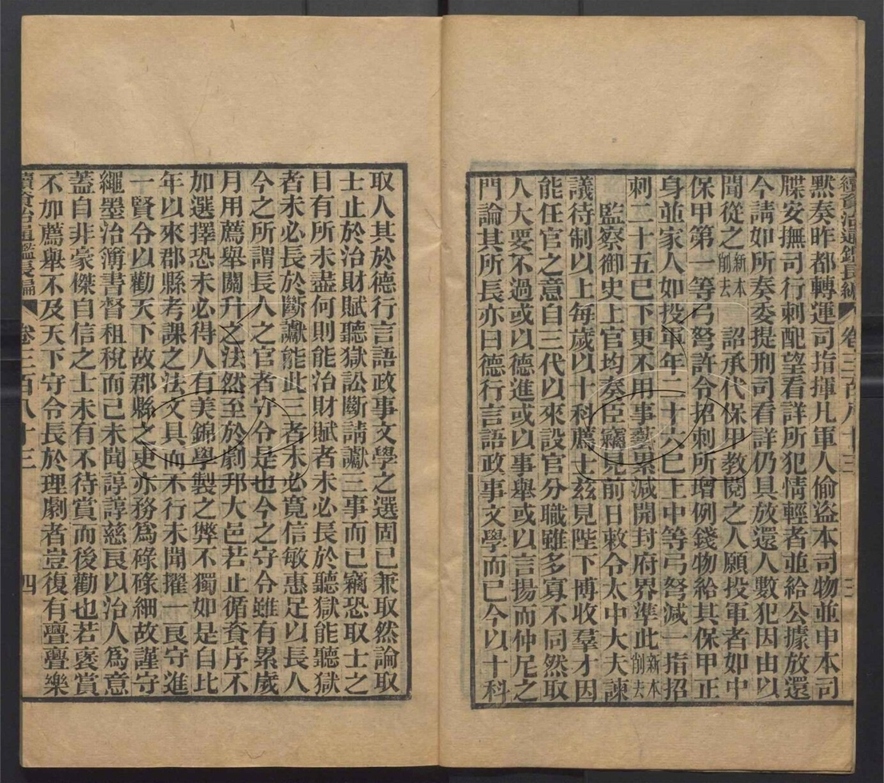 續資治通鑑長編 卷三百八十三 三
黙奏昨都轉運司指揮凡軍人偷盜本司物並申本司
牒安撫司行刺配望看詳所犯情輕者並給公據放還
今請如所奏委提刑司看詳仍具放還人數犯因由以
聞從之新本削去 詔承代保甲教閱之人願投軍者如中
保甲第一等弓弩許令招刺所增例錢物給其保甲正
身並家人如投軍年二十六巳上中等弓弩減一指招
刺二十五巳下更不用事藝累減開封府界準此新本削去
監察御史上官均奏臣竊見前日敕令太中大夫諫
議待制以上每歲以十科薦士茲見陛下博收羣才因
能任官之意自三代以來設官分職雖多寡不同然取
人大要不過或以德進或以事舉或以言揚而仲尼之
門論其所長亦曰德行言語政事文學而巳今以十科
取人其於德行言語政事文學之選固巳兼取然論取
士止於治財賦聽獄訟斷請讞三事而巳竊恐取士之
目有所未盡何則能治財賦者未必長於聽獄能聽獄
者未必長於斷讞能此三者未必寬信敏惠足以長人
今之所謂長人之官者守令是也今之守令雖有累歲
月用薦舉關升之法然至於劇邦大邑若止循資序不
加選擇恐未必得人有美錦學製之弊不獨如是自比
年以來郡縣考課之法文具而不行未聞擢一良守進
一賢令以勸天下故郡縣之吏亦務為碌碌細故謹守
繩墨治簿書督租稅而巳未聞諄諄慈良以治人為意
蓋自非豪傑自信之士未有不待賞而後勸也若褒賞
不加薦舉不及天下守令長於理劇者豈復有亹亹樂
續資治通鑑長編 卷三百八十三 四